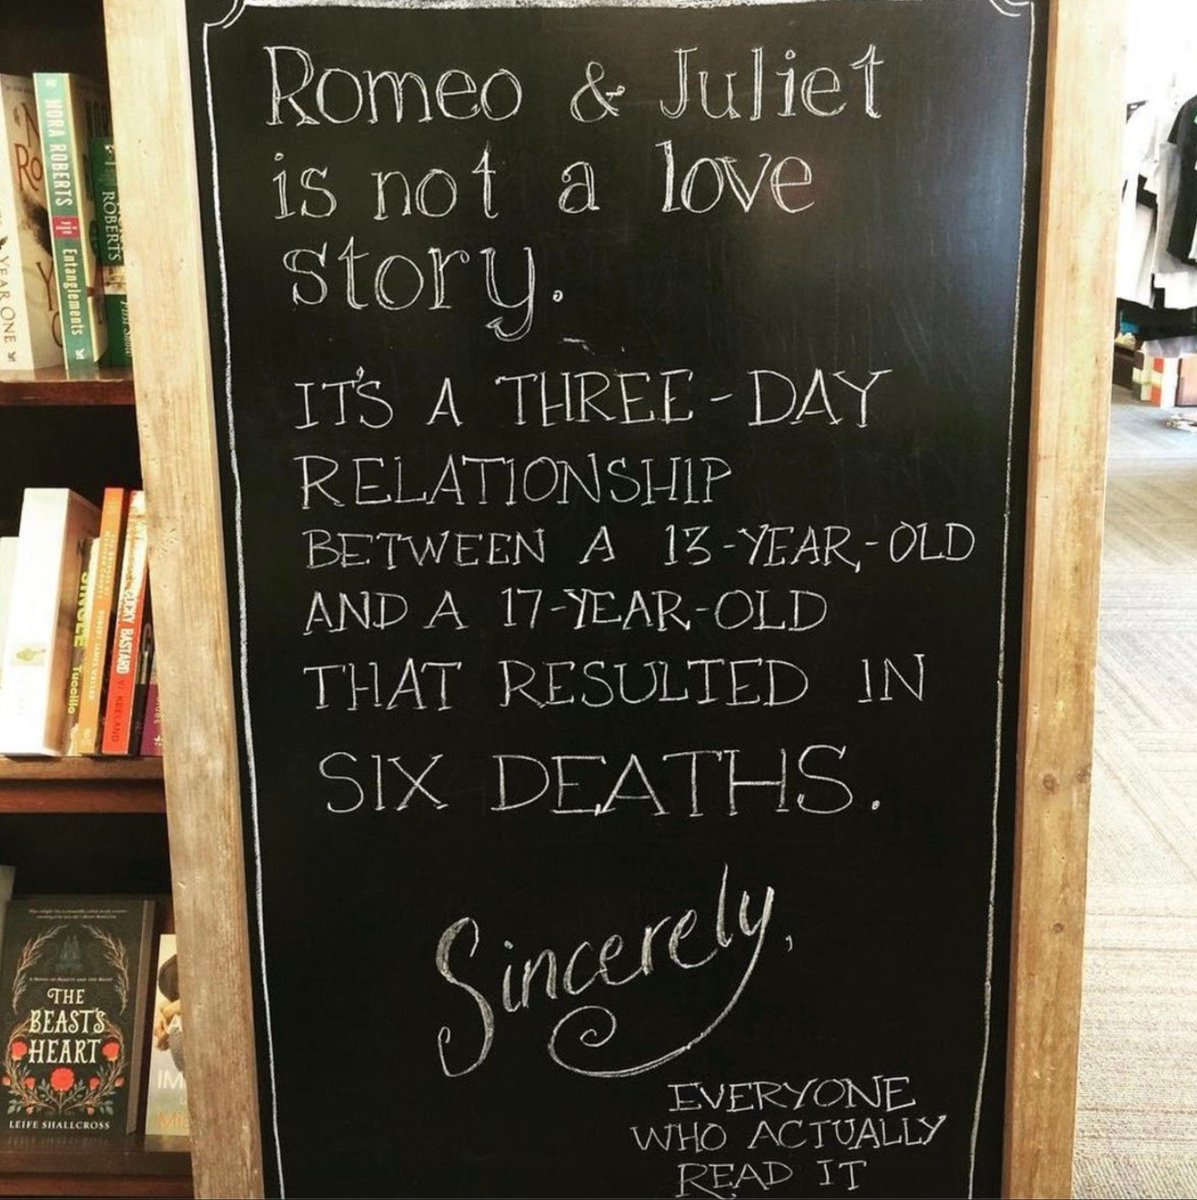 Romeo & Juliet
is not a love
story.
IT'S A THREE-DAY
RELATIONSHIP
BETWEEN A 13-YEAR-OLD
AND A 17-YEAR-OLD
THAT RESULTED IN
SIX DEATHS.
Sincerely,
EVERYONE
WHO ACTUALLY
READ IT
YEAR ONE
NORA ROBERTS
Entanglements
ROBERTS
Tuccillo
BASTARD
KEELAND
THE
BEAST'S
HEART
LEIFE SHALLCROSS